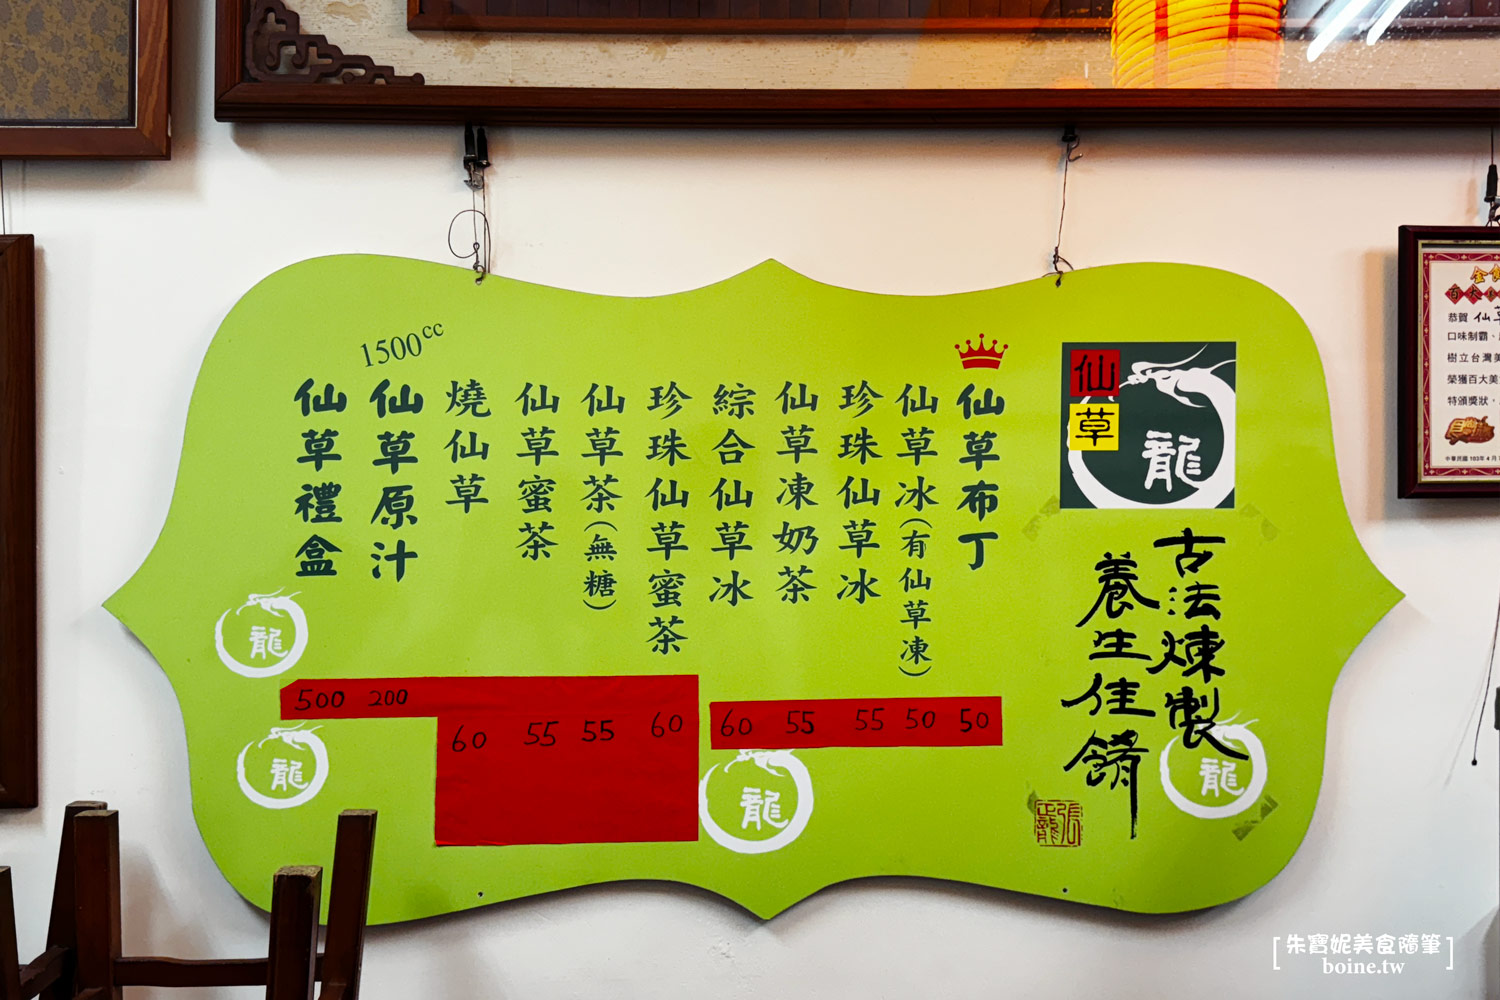 仙草
龍
古法煉製
養生佳餚
張龍
仙草布丁
50
仙草冰(有仙草凍)
50
珍珠仙草冰
55
仙草凍奶茶
55
綜合仙草冰
60
珍珠仙草蜜茶
60
仙草茶(無糖)
55
仙草蜜茶
55
燒仙草
60
1500cc
仙草原汁
200
仙草禮盒
500
龍
龍
龍
龍
百大
恭賀 仙草
口味制霸、
樹立台灣美
榮獲百大美
特頒獎狀，
中華民國 103年 4月
朱寶妮美食隨筆
boine.tw